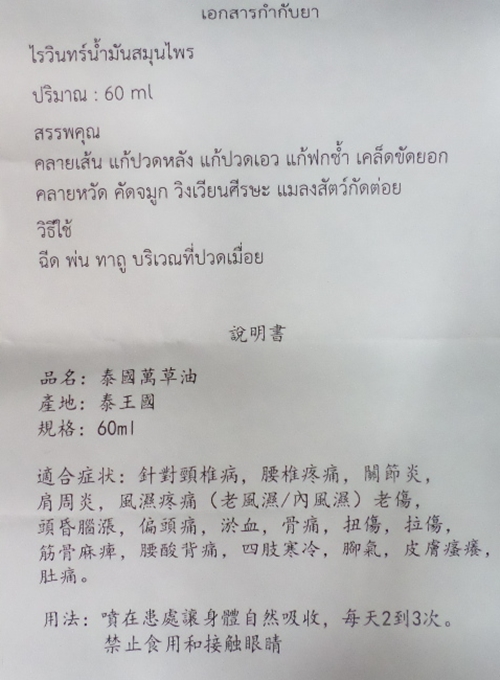 เอกสารกำกับยา
ไรวินทร์น้ำมันสมุนไพร
ปริมาณ : 60 ml
สรรพคุณ
คลายเส้น แก้ปวดหลัง แก้ปวดเอว แก้ฟกช้ำ เคล็ดขัดยอก
คลายหวัด คัดจมูก วิงเวียนศีรษะ แมลงสัตว์กัดต่อย
วิธีใช้
ฉีด พ่น ทาถู บริเวณที่ปวดเมื่อย
說明書
品名: 泰國萬草油
產地: 泰王國
規格: 60ml
適合症状: 針對頸椎病, 腰椎疼痛, 關節炎,
肩周炎, 風濕疼痛 (老風濕/內風濕) 老傷,
頭昏腦漲, 偏頭痛, 淤血, 骨痛, 扭傷, 拉傷,
筋骨麻痺, 腰酸背痛, 四肢寒冷, 腳氣, 皮膚瘙癢,
肚痛。
用法: 噴在患處讓身體自然吸收, 每天2到3次。
禁止食用和接触眼睛